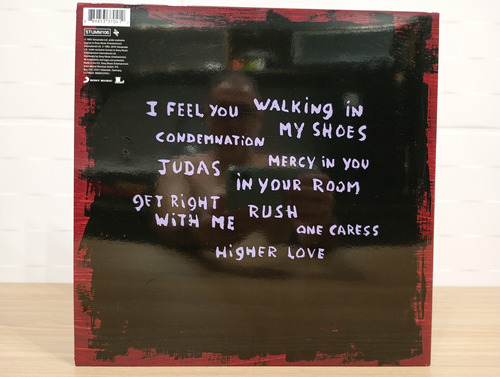 STUMM106
SONY MUSIC
I FEEL YOU WALKING IN
MY SHOES
CONDEMNATION
JUDAS MERCY IN YOU
IN YOUR ROOM
GET RIGHT
WITH ME RUSH
ONE CARESS
HIGHER LOVE